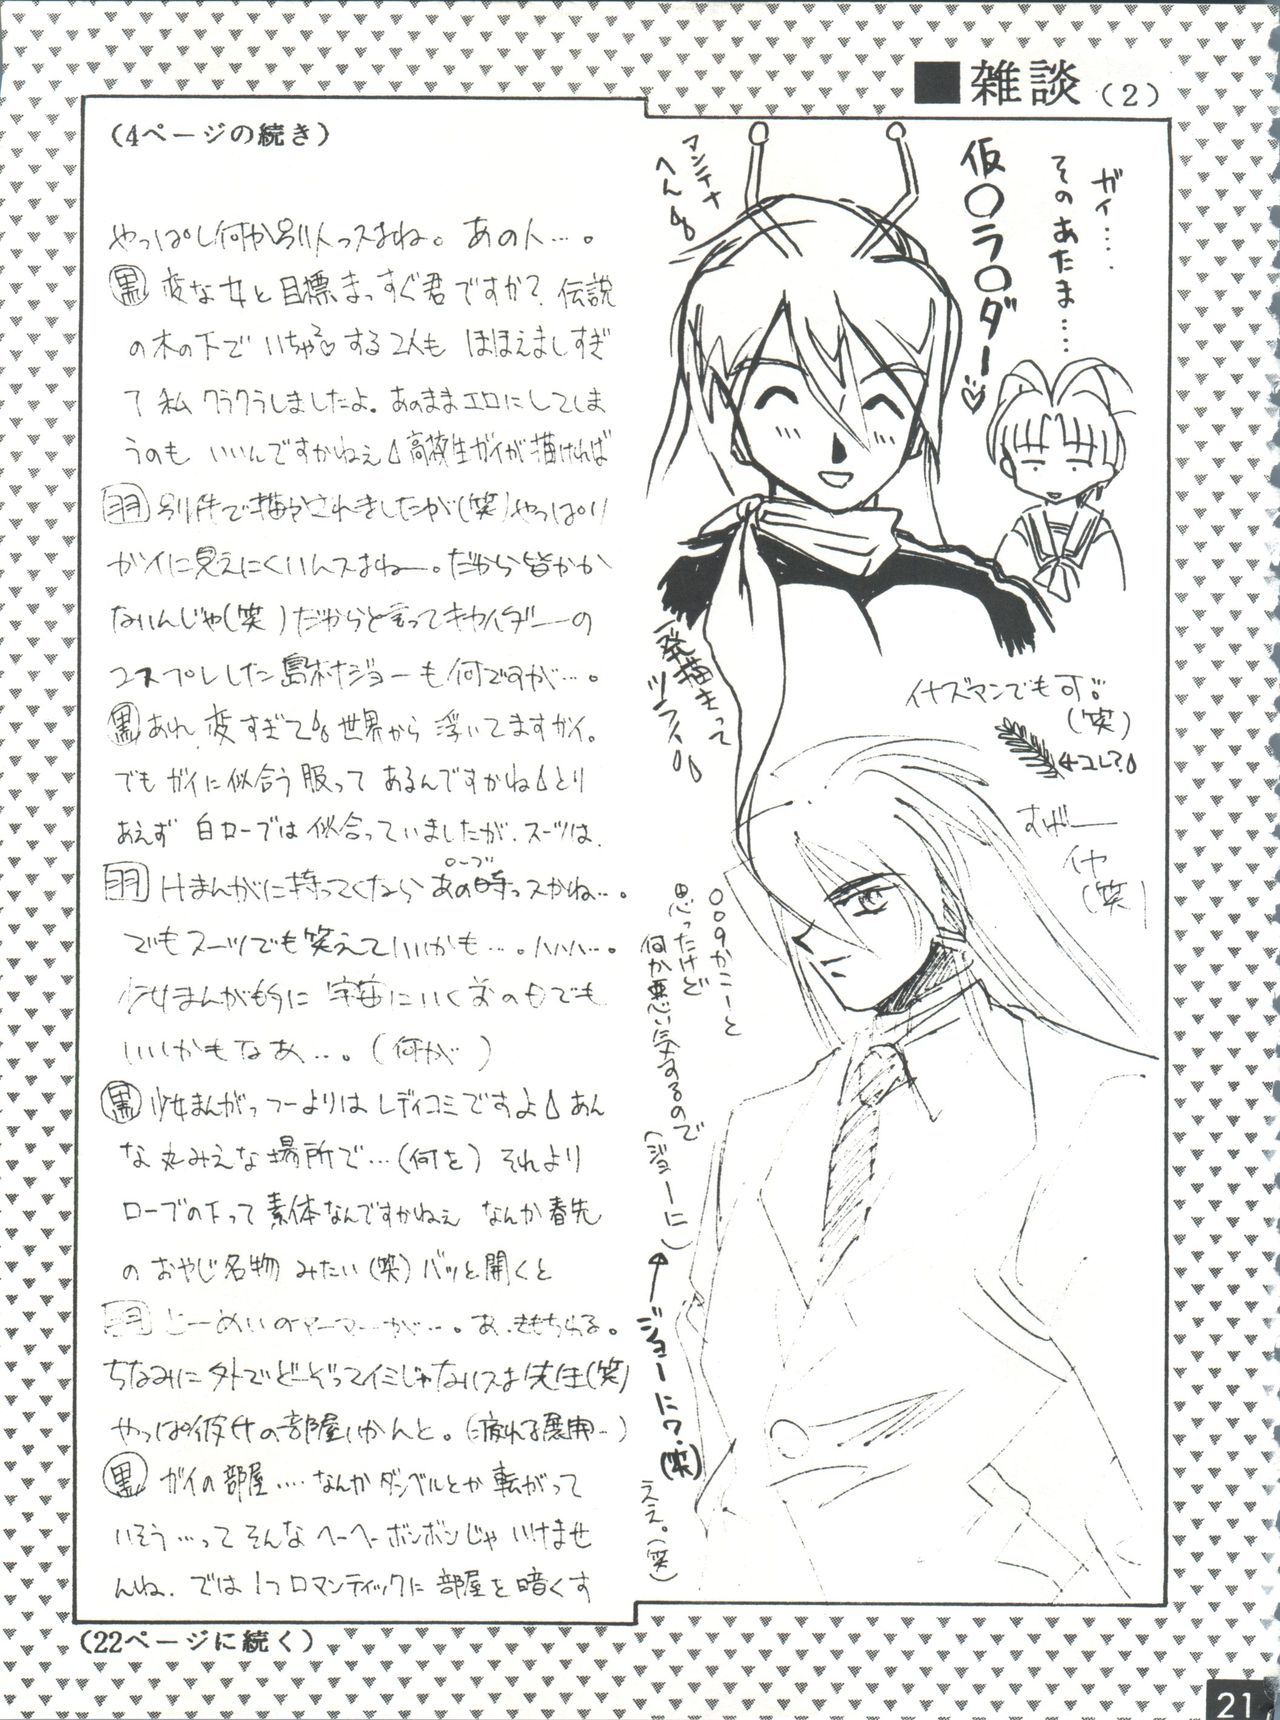 ■雑談（2）
（4ページの続き）
やっぱし何か別人っスよね。あの人…。
黒 変な女と目標まっすぐ君ですか？伝説
の木の下でいちゃ²♡する2人もほほえましすぎ
て私クラクラしましたよ。あのままエロにしてしま
うのもいいんですかねぇ 高校生ガイが描ければ
羽 別件で描かされましたが(笑)やっぱり
ガイに見えにくいんスよねー。だから皆かか
ないんじゃ(笑)だからと言ってキカイダーの
コスプレした島村ジョーも何ですが…。
黒 あれ、変すぎて 世界から浮いてますガイ。
でもガイに似合う服ってあるんですかね とり
あえず白ローブは似合っていましたが、スーツは、
羽 Hまんがに持ってくならあの時(ローブ)っスかね…。
でもスーツでも笑えていいかも…。ハハハ…。
少女まんが的に宇宙にいく前のでも
いいかもなあ…。(何が)
黒 少女まんがっつーよりはレディコミですよ あん
な丸みえな場所で…(何を)それより
ローブの下って素体なんですかねぇ なんか春先
のおやじ名物みたい(笑)バッと開くと
羽 とーめいのアーマーが…。あ、きもちわる。
ちなみに外でどーぞってイミじゃないスよ先生(笑)
やっぱ彼女の部屋いかんと。(に疲れる展開…)
黒 ガイの部屋….なんかダンベルとか転がって
いそう…ってそんなへーへーボンボンじゃいけませ
んね。では1つロマンティックに部屋を暗くす
（22ページに続く）
アンテナ
へん
仮〇ラ〇ダー♡
ガイ….
そのあたま……
一発描きって
ツライ
イナズマンでも可。
(笑)
コレ？
すげー
イヤ
(笑)
009かこーと
思ったけど
何か悪い気するので
(ジョーに)
←ジョーに？(笑)
ええ。(笑)
21